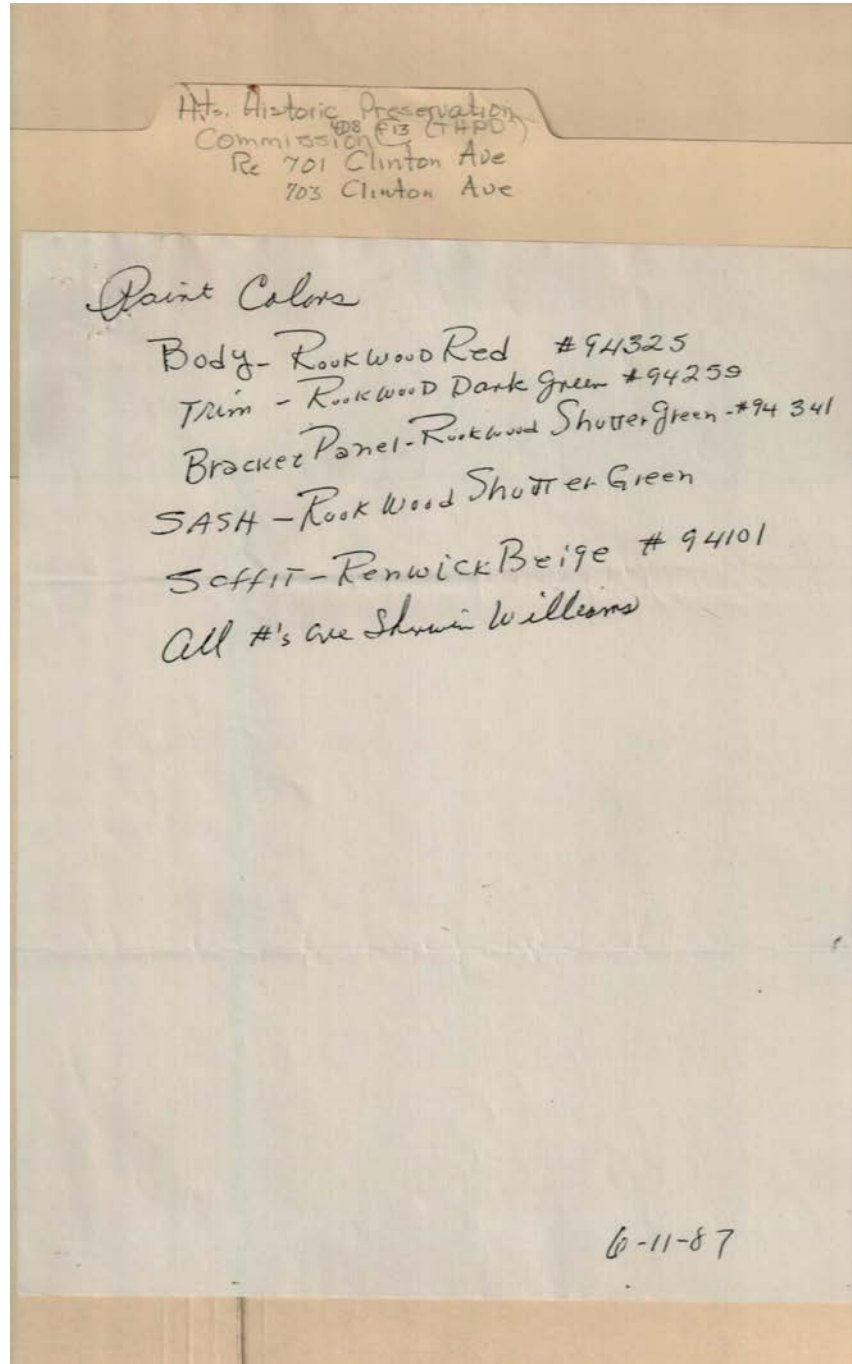 Hts. Historic Preservation
408 F13 (THPD)
Commission
Re 701 Clinton Ave
703 Clinton Ave
Paint Colors
Body - Rookwood Red #94325
Trim - Rookwood Dark Green #94259
Bracket Panel - Rookwood Shutter Green - #94341
SASH - Rook Wood Shutter Green
Soffit - Renwick Beige # 94101
All #'s are Sherwin Williams
6-11-87